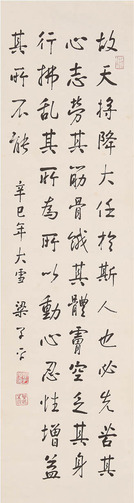 故天将降大任於斯人也必先苦其
心志劳其筋骨饿其體膚空乏其身
行拂乱其所為所以動心忍性增益
其所不能
辛巳年大雪 梁子平